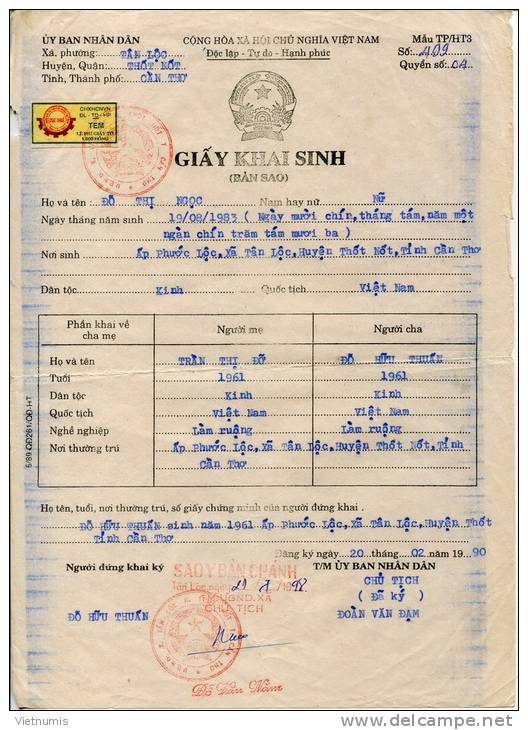 ỦY BAN NHÂN DÂN
Xã, phường: TÂN LỘC
Huyện, Quận: THỐT NỐT
Tỉnh, Thành phố: CẦN THƠ
CỘNG HÒA XÃ HỘI CHỦ NGHĨA VIỆT NAM
Độc lập - Tự do - Hạnh phúc
Mẫu TP/HT3
Số: 409
Quyển số: 01
CHXHCNVN
TEM
GIẤY KHAI SINH
(BẢN SAO)
Họ và tên: ĐỖ THỊ NGỌC Nam hay nữ: NỮ
Ngày tháng năm sinh 19/08/1983 ( Ngày mười chín, tháng tám, năm một
ngàn chín trăm tám mươi ba )
Nơi sinh Ấp Phước Lộc, Xã Tân Lộc, Huyện Thốt Nốt, Tỉnh Cần Thơ
Dân tộc Kinh Quốc tịch Việt Nam
Phần khai về cha mẹ Người mẹ Người cha
Họ và tên TRẦN THỊ ĐỮ ĐỖ HỮU THUẤN
Tuổi 1961 1961
Dân tộc Kinh Kinh
Quốc tịch Việt Nam Việt Nam
Nghề nghiệp Làm ruộng Làm ruộng
Nơi thường trú Ấp Phước Lộc, Xã Tân Lộc, Huyện Thốt Nốt, Tỉnh
Cần Thơ
Họ tên, tuổi, nơi thường trú, số giấy chứng minh của người đứng khai .
ĐỖ HỮU THUẤN sinh năm 1961 Ấp Phước Lộc, Xã Tân Lộc, Huyện Thốt
Tỉnh Cần Thơ
Đăng ký ngày 20 tháng 02 năm 19 90
Người đứng khai ký
ĐỖ HỮU THUẤN
SAO Y BẢN CHÁNH
Tân Lộc ngày
TM.UBND.XÃ
CHỦ TỊCH
T/M ỦY BAN NHÂN DÂN
CHỦ TỊCH
( Đã ký )
ĐOÀN VĂN ĐẠM
Đỗ Văn Năm
Vietnumis
delcampe.net